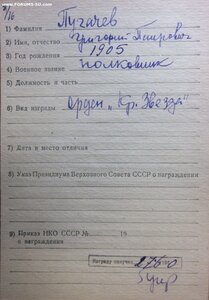 www.FORUMS-SU.com
1) Фамилия Пугачев
2) Имя, отчество Григорий Петрович
3) Год рождения 1905
4) Военное звание полковник
5) Должность и часть
6) Вид награды Орден „Кр. Звезда"
7) Дата и место отличия
8) Указ Президиума Верховного Совета СССР о награждении
9) Приказ НКО СССР № 19
о награждении
Награду получил